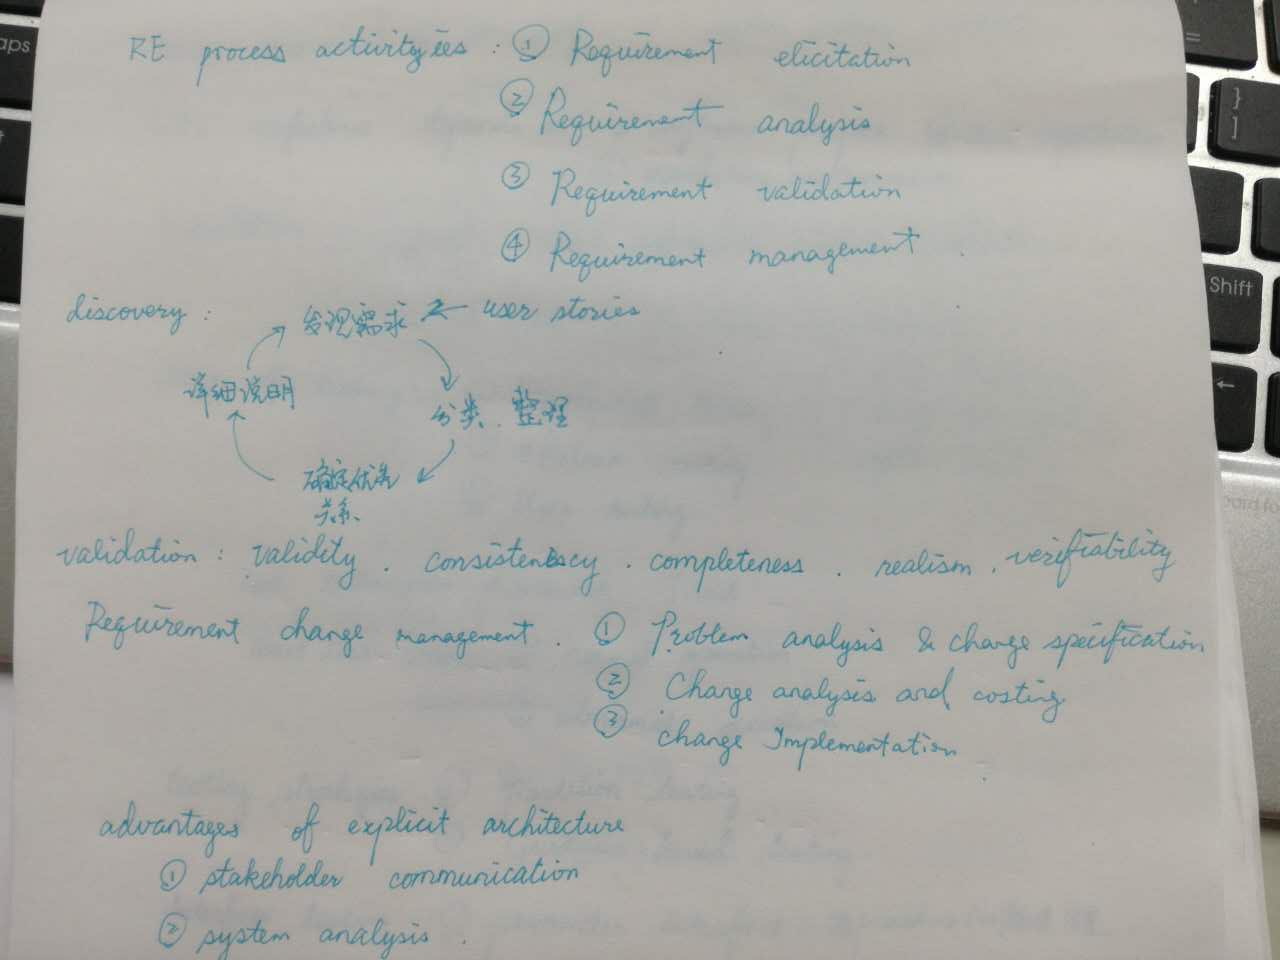 RE process activityies : ① Requirement elicitation
② Requirement analysis
③ Requirement validation
④ Requirement management .
discovery : 发现需求 ← user stories
详细说明
分类、整理
确定优先
关系
validation : validity . consistency . completeness . realism . verifiability
Requirement change management . ① Problem analysis & change specification
② Change analysis and costing
③ change Implementation .
advantages of explicit architecture
① stakeholder communication
② system analysis .
aps
=
}
]
Shift
←